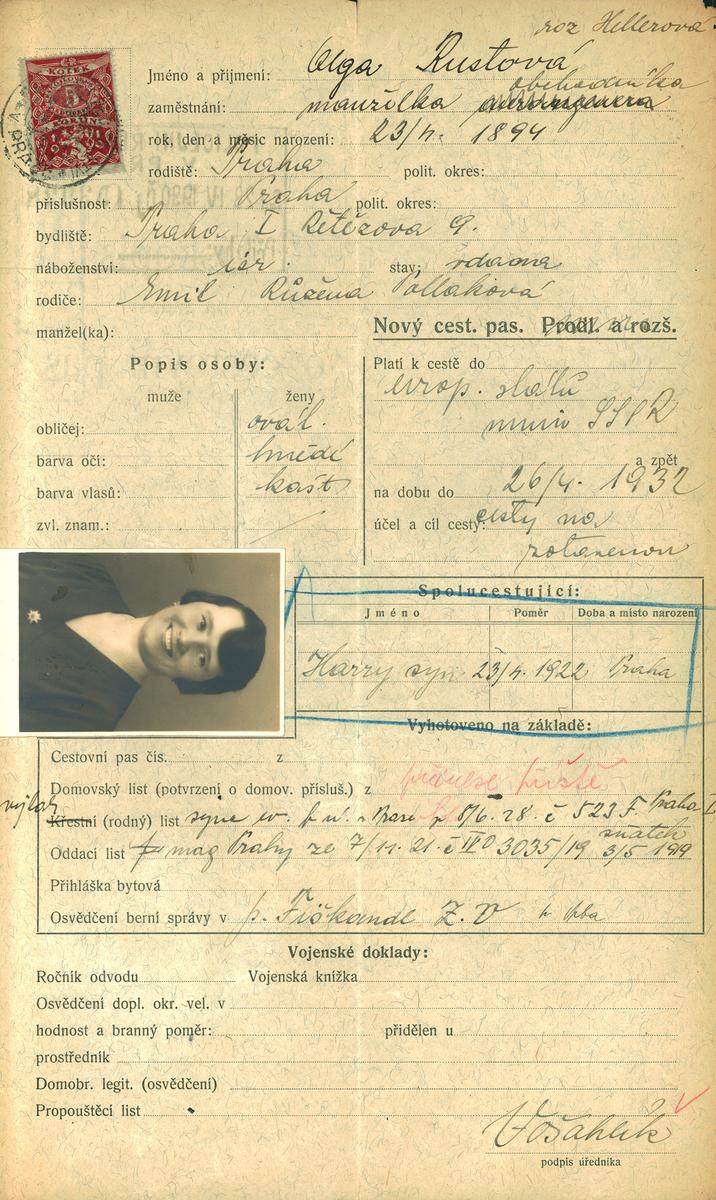 roz Hellerová
Jméno a přijmení: Olga Rustová
obchodníka
zaměstnání: manželka
rok, den a měsíc narození: 23/4. 1894
rodiště: Praha polit. okres:
příslušnost: Praha polit. okres:
bydliště: Praha I Řetězova 9.
náboženství: isr. stav: vdaná
rodiče: Emil Růžena Pollaková
manžel(ka):
Nový cest. pas. Prodl. a rozš.
Popis osoby:
muže ženy
obličej: ovál.
barva očí: hnědé
barva vlasů: kašt
zvl. znam.:
Platí k cestě do
evrop. států
mimo SSSR
a zpět
na dobu do 26/4. 1932
účel a cíl cesty: cesty na
zotavenou
Spolucestující:
Jméno Poměr Doba a místo narození
Harry syn 23/4. 1922 Praha
Vyhotoveno na základě:
Cestovní pas čís. z
Domovský list (potvrzení o domov. přísluš.) z
přinese příště
Křestní (rodný) list 8/6. 28. č 523 F. Praha I
snatek
Oddací list mag Prahy ze 7/11. 21. č IV D 3035/19 3/5 1919
Přihláška bytová
Osvědčení berní správy v
Vojenské doklady:
Ročník odvodu Vojenská knížka
Osvědčení dopl. okr. vel. v
hodnost a branný poměr: přidělen u
prostředník
Domobr. legit. (osvědčení)
Propouštěcí list
podpis úředníka